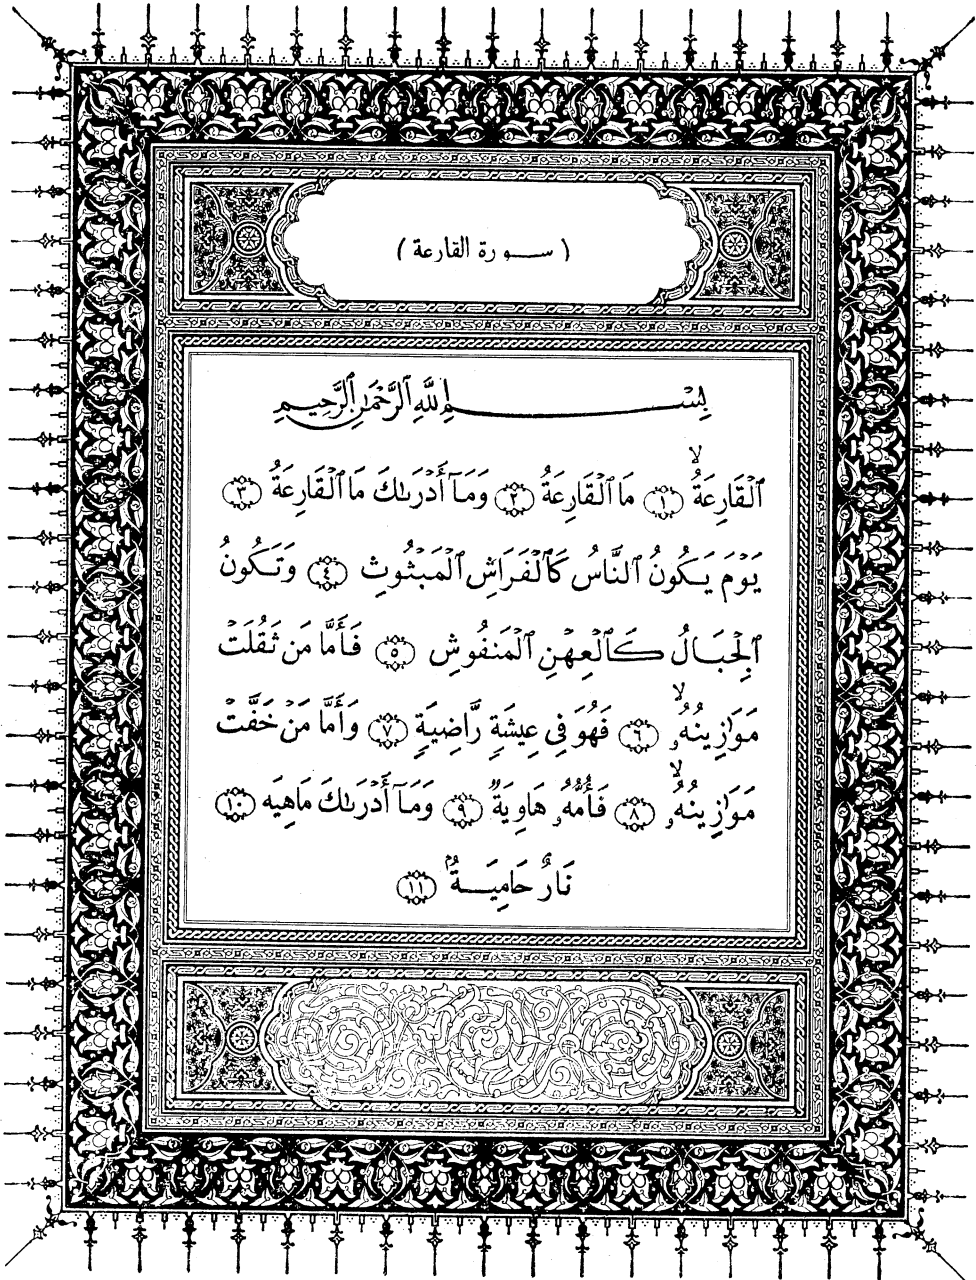 ( سـورة القارعة )
بِسْـــــمِ ٱللَّهِ ٱلرَّحْمَٰنِ ٱلرَّحِيمِ
ٱلْقَارِعَةُ ۙ ﴿١﴾ مَا ٱلْقَارِعَةُ ﴿٢﴾ وَمَآ أَدْرَىٰكَ مَا ٱلْقَارِعَةُ ﴿٣﴾
يَوْمَ يَكُونُ ٱلنَّاسُ كَٱلْفَرَاشِ ٱلْمَبْثُوثِ ﴿٤﴾ وَتَكُونُ
ٱلْجِبَالُ كَٱلْعِهْنِ ٱلْمَنفُوشِ ﴿٥﴾ فَأَمَّا مَن ثَقُلَتْ
مَوَٰزِينُهُۥ ۙ ﴿٦﴾ فَهُوَ فِى عِيشَةٍ رَّاضِيَةٍ ﴿٧﴾ وَأَمَّا مَنْ خَفَّتْ
مَوَٰزِينُهُۥ ۙ ﴿٨﴾ فَأُمُّهُۥ هَاوِيَةٌ ﴿٩﴾ وَمَآ أَدْرَىٰكَ مَاهِيَهْ ﴿١٠﴾
نَارٌ حَامِيَـةٌۢ ﴿١١﴾